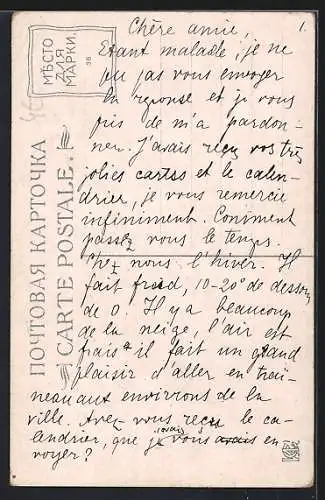 МѢСТО
ДЛЯ
МАРКИ.
ПОЧТОВАЯ КАРТОЧКА
CARTE POSTALE.
1.
Chère amie,
Etant malade, je ne
pu pas vous envoyer
la reponse et je vous
pis de m'a pardon-
ner. J'avais reçu vos très
jolies cartes et le calen-
drier, je vous remercie
infiniment. Comment
passez vous le temps.
Chez nous l'hiver. Il
fait froid, 10-20° de dessous
de 0. Il y a beaucoup
de la neige, l'air est
frais et il fait un grand
plaisir d'aller en traî-
neau aux environs de la
ville. Avez-vous reçu le ca-
landrier, que je vous avais en
voyer?